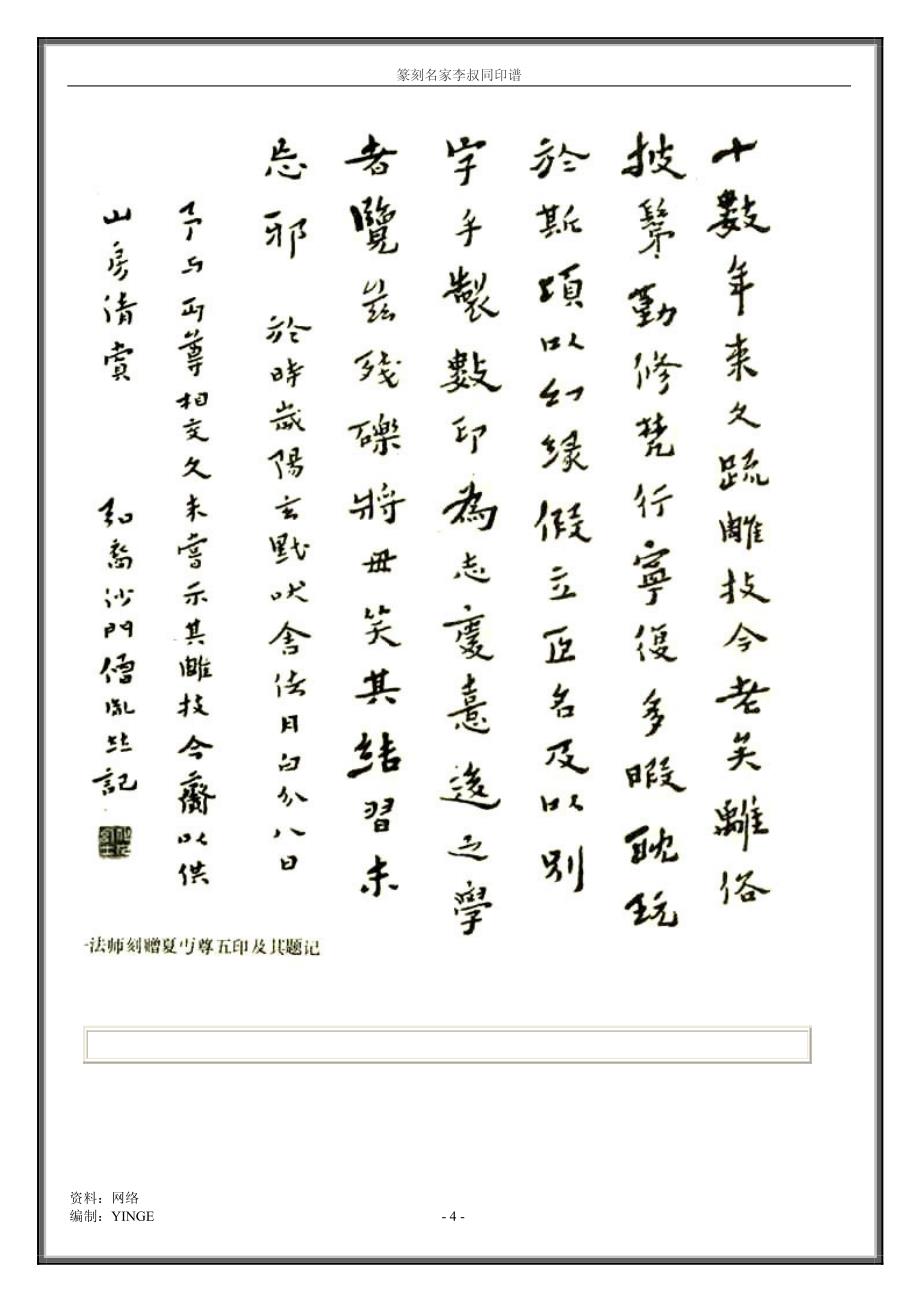 篆刻名家李叔同印谱
十數年来久疏雕技今老矣離俗
披鬀勤修梵行寧復多暇耽玩
於斯頃以幻緣假立臣名及以別
字手製數印為志慶憙後之學
者覽兹殘礫將毋笑其結習未
忘邪 於時歲陽玄黓吠舍佉月白分八日
予与丏尊相交久未嘗示其雕技今齎以供
山房清賞 弘裔沙門僧胤並記
一法师刻赠夏丏尊五印及其题记
资料：网络
编制：YINGE
- 4 -